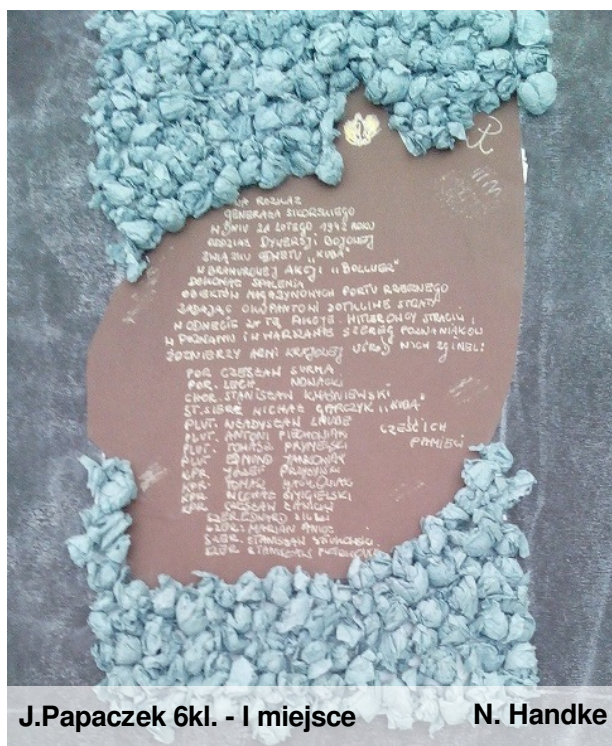 NA ROZKAZ
GENERAŁA SIKORSKIEGO
W DNIU 21 LUTEGO 1942 ROKU
ODDZIAŁ DYWERSJI BOJOWEJ
ZWIĄZKU ODWETU „KUBA”
W BRAWUROWEJ AKCJI „BOLLWER”
DOKONAŁ SPALENIA
OBIEKTÓW MAGAZYNOWYCH PORTU RZECZNEGO
ZADAJĄC OKUPANTOWI DOTKLIWE STRATY
W ODWECIE ZA TĘ AKCJĘ HITLEROWCY STRACILI
W POZNANIU I W WARSZAWIE SZEREG POZNANIAKÓW
ŻOŁNIERZY ARMI KRAJOWEJ WŚRÓD NICH ZGINĘLI:
POR CZESŁAW SURMA
POR. LECH NOWACKI
CHOR. STANISŁAW KWAŚNIEWSKI
ST. SIERŻ MICHAŁ GARCZYK „KUBA”
PLUT. WŁADYSŁAW LAUBE
PLUT. ANTONI
PLUT. TOMASZ
PLUT EDMUND
KPR JÓZEF
KPR. TOMASZ
KPR MICHAŁ ŚMIGIELSKI
KPR CZESŁAW
EDWARD
SZER. MARIAN
SZER. STANISŁAW
SZER STANISŁAW
CZEŚĆ ICH
PAMIĘCI
J.Papaczek 6kl. - I miejsce
N. Handke